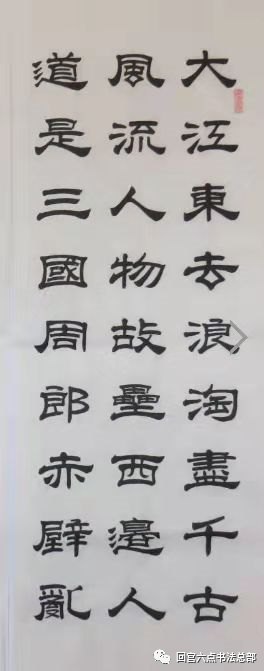 大江東去浪淘盡千古
風流人物故壘西邊人
道是三國周郎赤壁亂
回宫六点书法总部